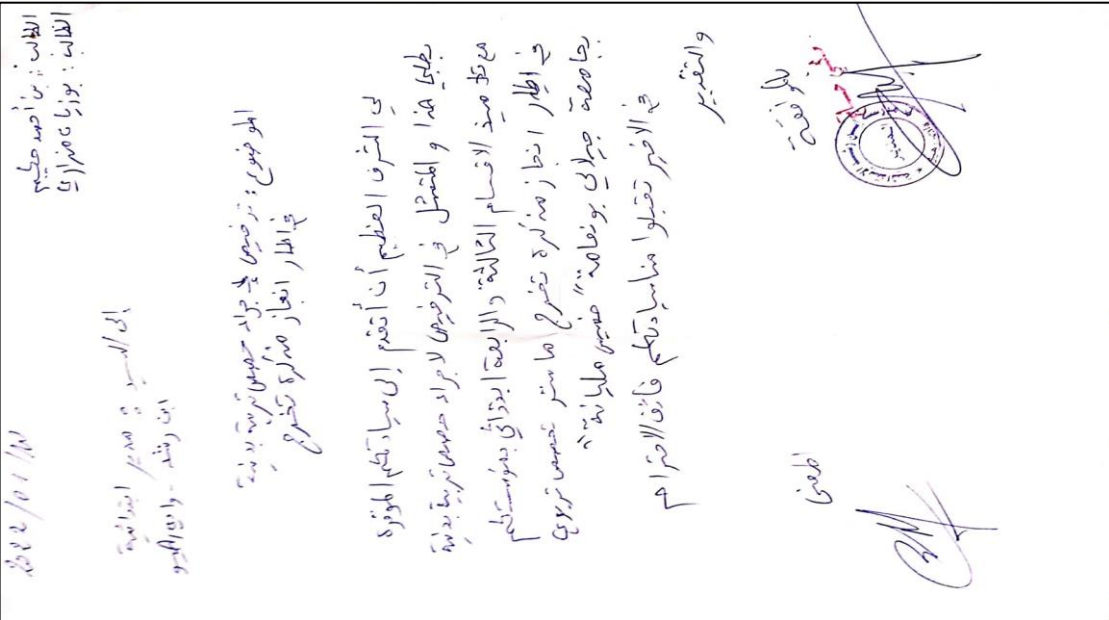 الطالب: بن أحمد حكيم
الطالب: بوزيان
2022/01/
إلى السيد: مدير ابتدائية
ابن رشد -
الموضوع: ترخيص لإجراء حصص تربية بدنية
في إطار انجاز مذكرة تخرج
لي الشرف العظيم أن أتقدم إلى سيادتكم الموقرة
بطلبي هذا والمتمثل في الترخيص لاجراء حصص تربية بدنية
مع الاقسام الثالثة والرابعة ابتدائي بمؤسستكم
في إطار انجاز مذكرة تخرج ماستر تخصص تربوي
بجامعة جيلالي بونعامة "خميس مليانة"
في الاخير تقبلوا منا سيادتكم فائق الاحترام
والتقدير
المعني
بالموافقة